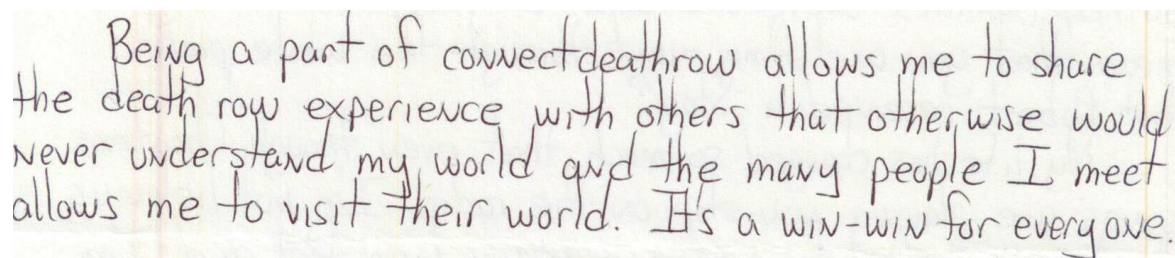 Being a part of connectdeathrow allows me to share
the death row experience with others that otherwise would
never understand my world and the many people I meet
allows me to visit their world. It's a win-win for everyone.